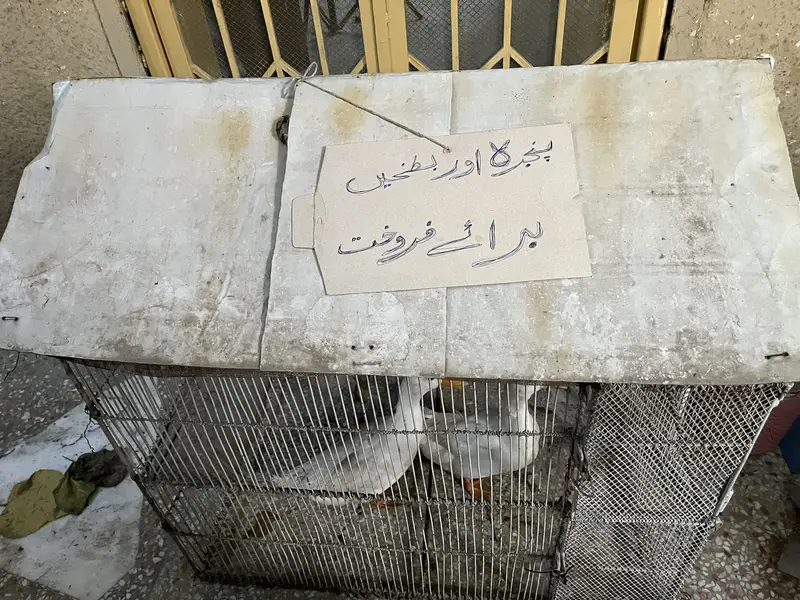 پنجرہ اور بطخیں
برائے فروخت